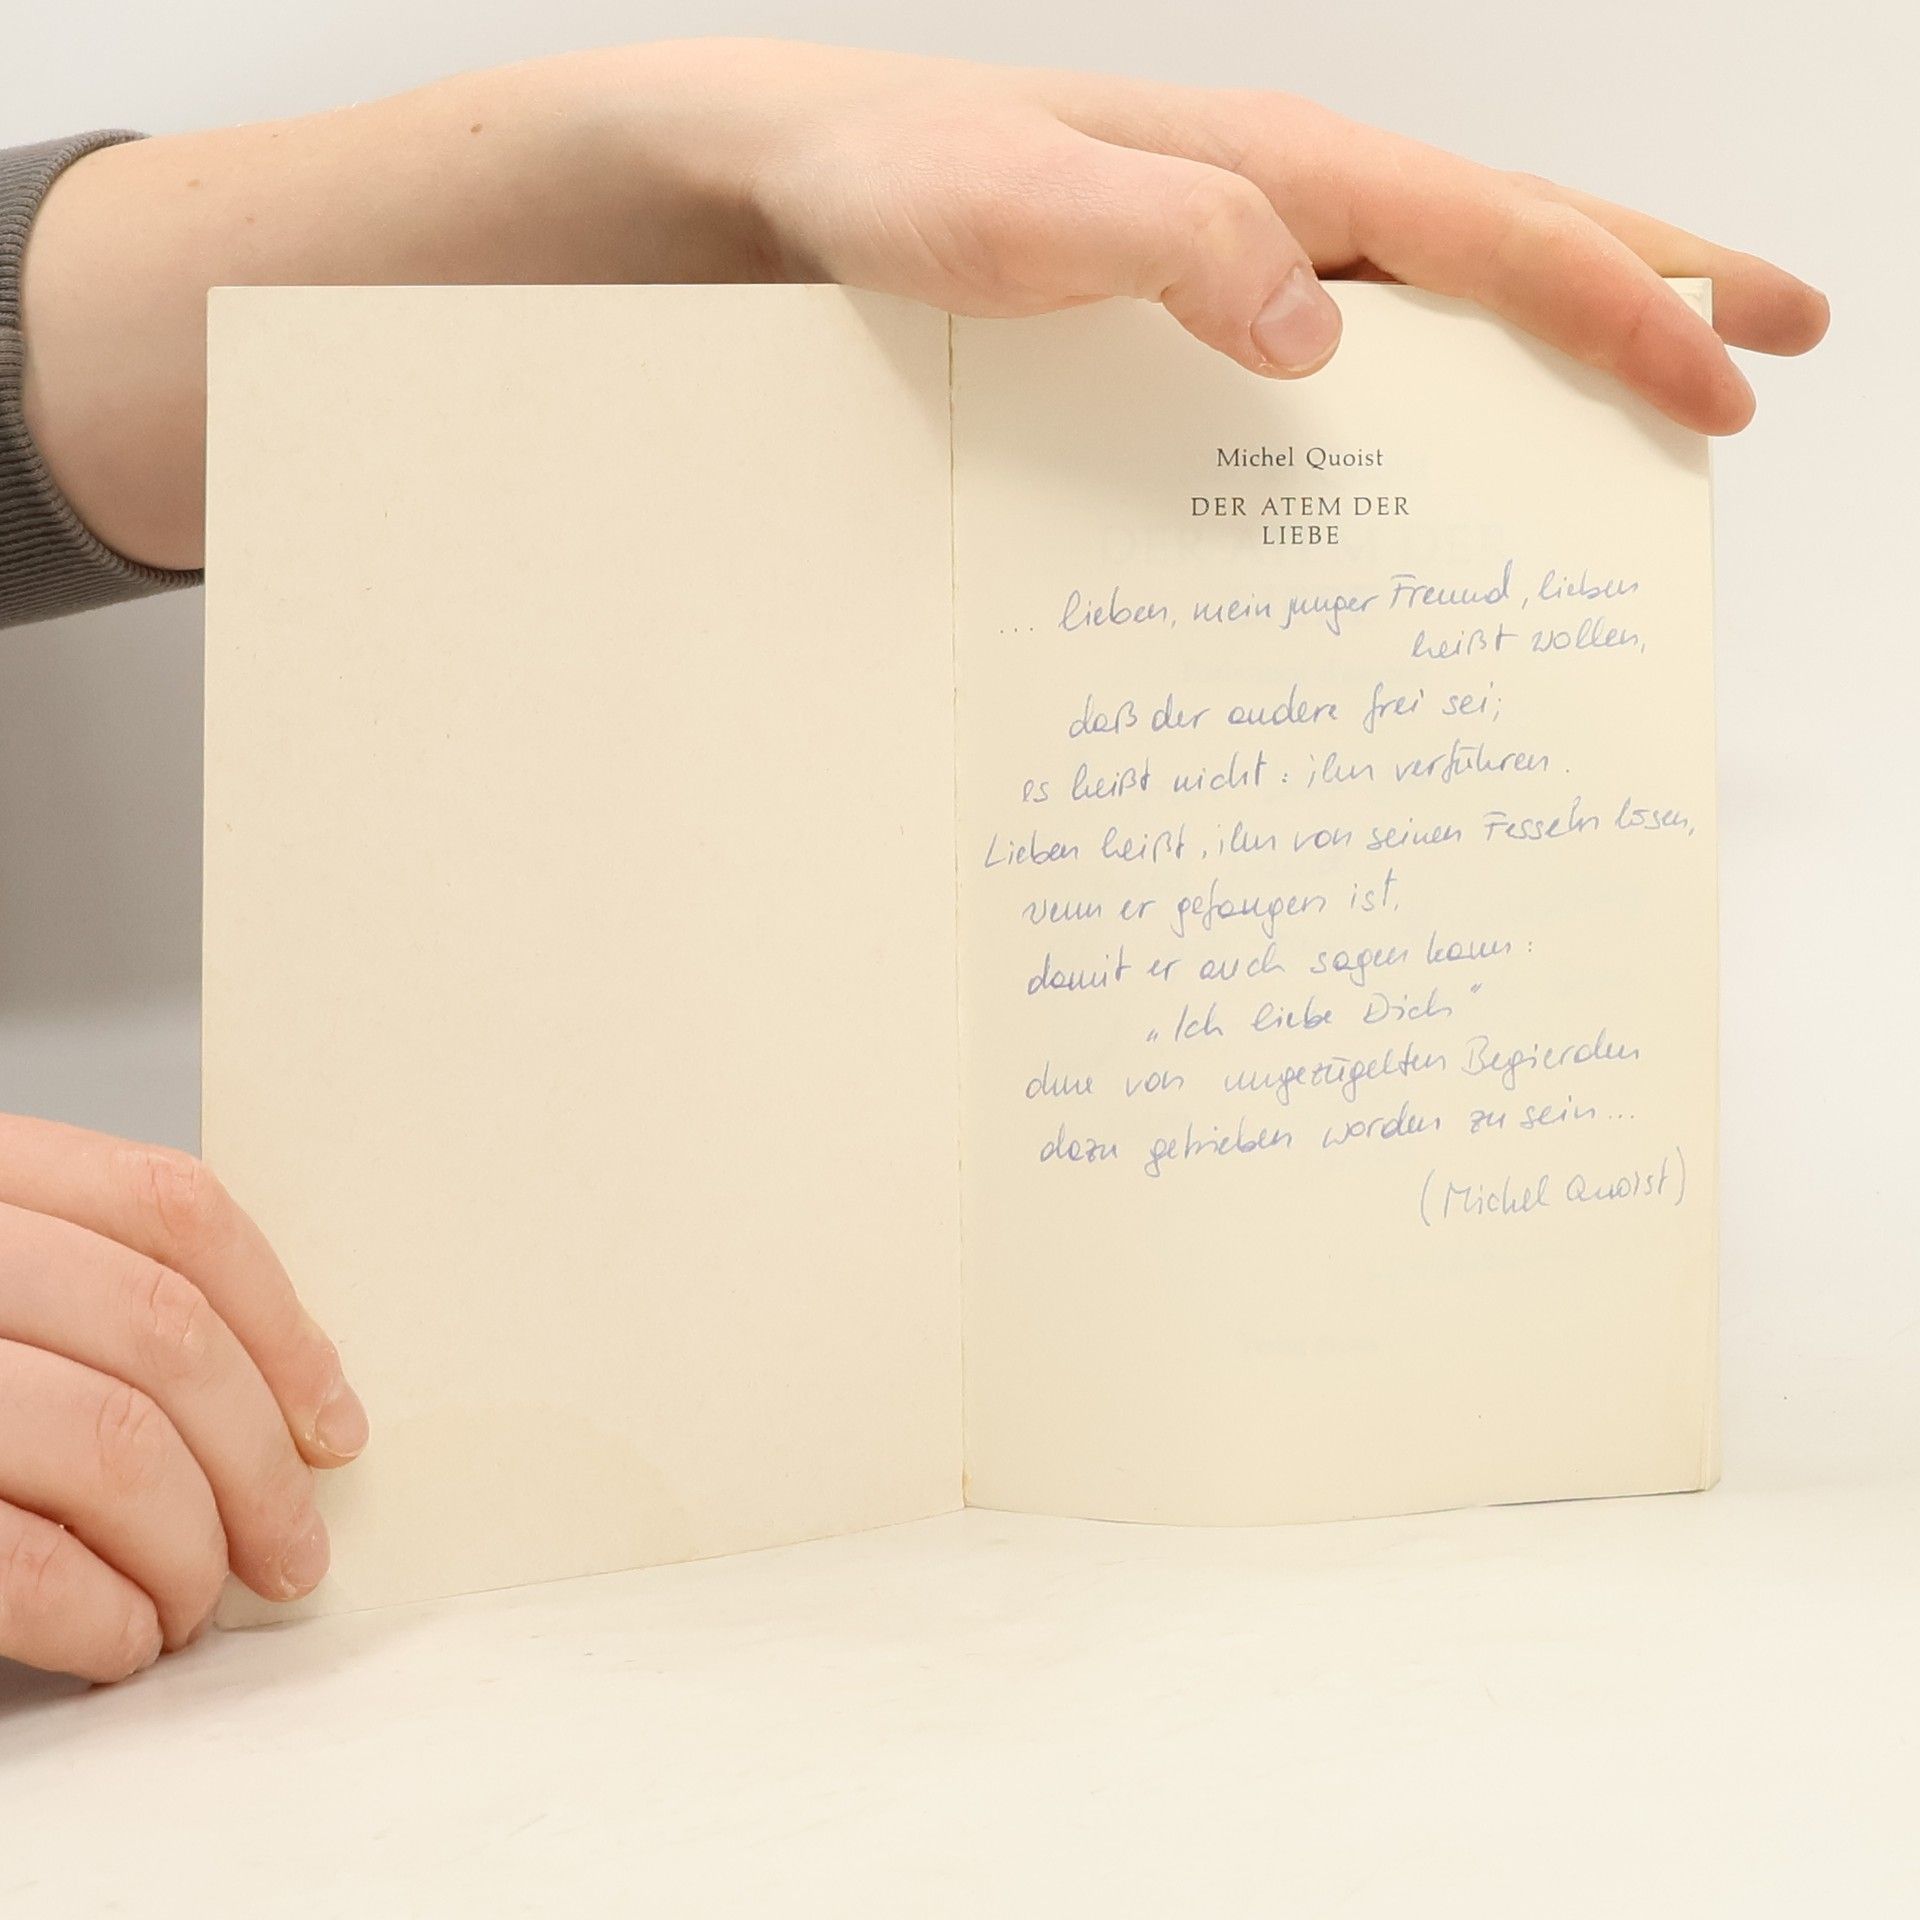 Michel Quoist
DER ATEM DER
LIEBE
... lieben, mein junger Freund, lieben
heißt wollen,
daß der andere frei sei;
es heißt nicht: ihn verführen.
Lieben heißt, ihn von seinen Fesseln lösen,
wenn er gefangen ist,
damit er auch sagen kann:
„Ich liebe Dich"
ohne von ungezügelten Begierden
dazu getrieben worden zu sein...
(Michel Quoist)